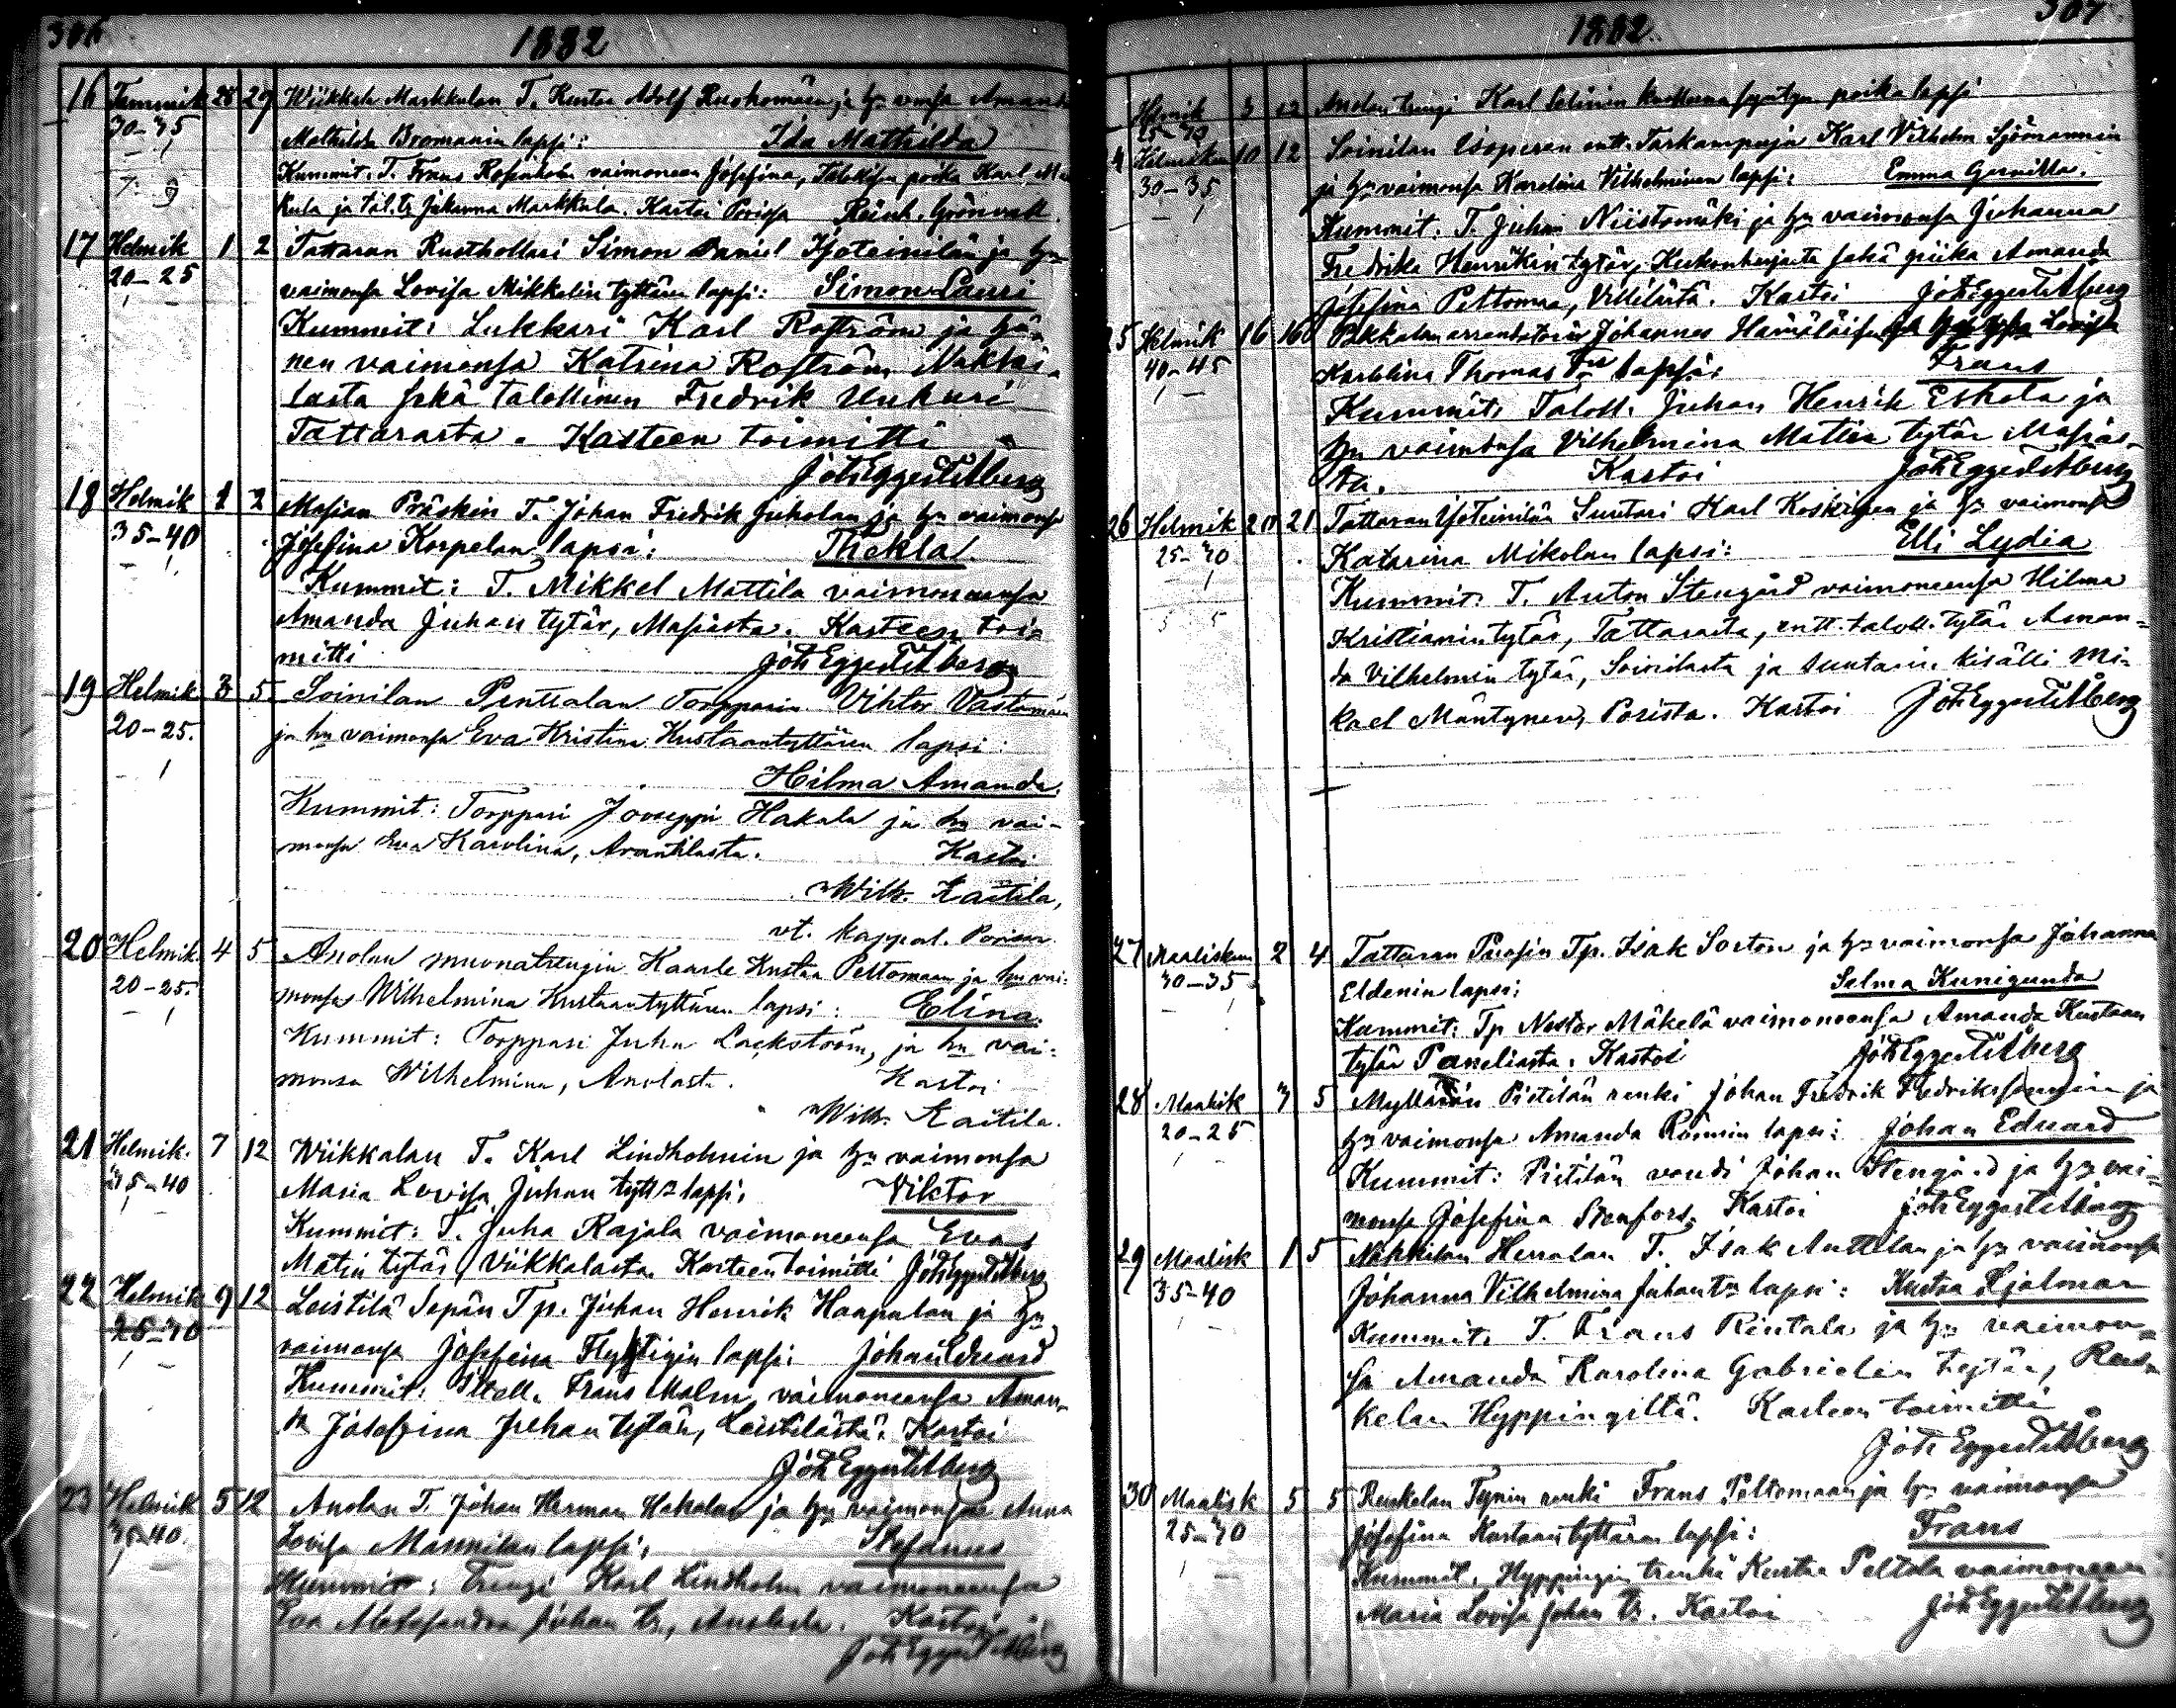 306
1882
16 Tammik 28 29 Wiikkala Markkulan T. Kustaa Adolf Ruohomäen ja hn vaimonsa Amanda
30-35 Mathilda Bromanin lapsi: Ida Mathilda
Kummit: T. Frans vaimoneen Josefina, poika Karl
ja tal. tr Johanna Markkula. Kastoi Porissa Reinh. Grönvall.
17 Helmik 1 2 Tattaran Rusthollari Simon Daniel Isoteinilän ja hn
20-25 vaimonsa Lovisa Mikkelin tyttären lapsi: Simon Lauri
Kummit: Lukkari Karl Roström ja hä-
nen vaimonsa Katrina Roström Nakki-
lasta sekä talollinen Fredrik Uukuri
Tattarasta. Kasteen toimitti
Joh Eggert Åberg
18 Helmik 1 2 Masian Präskin T. Johan Fredrik Juholan ja hn vaimonsa
35-40 Josefina Korpelan lapsi: Thekla
Kummit: T. Mikkel Mattila vaimoneensa
Amanda Juhan tytär, Masiasta. Kasteen toi-
mitti Joh Eggert Åberg
19 Helmik 3 5 Soinilan Penttalan Torpparin Vihtor Vastamäen
20-25. ja hn vaimonsa Eva Kristina Kustaantyttären lapsi:
Hilma Amanda.
Kummit: Torppari Jooseppi Hakala ja hn vai-
monsa Eva Karolina, Arantilasta. Kastoi
Wilh. Kaitila,
vt. kappal. Porissa
20 Helmik. 4 5 Anolan muonatrengin Kaarle Kustaa Peltomaan ja hn vai-
20-25. monsa Wilhelmina Kustaantyttären lapsi: Elina.
Kummit: Torppari Juha Lackström, ja hn vai-
monsa Wilhelmina, Anolasta. Kastoi
Wilh. Kaitila.
21 Helmik. 7 12 Wiikkalan T. Karl Lindholmin ja hn vaimonsa
35-40 Maria Lovisa Juhan tytt lapsi: Viktor
Kummit: T. Juha Rajala vaimoneensa Eva
Matin tytär, Viikkalasta. Kasteen toimitti Joh Eggert Åberg
22 Helmik 9 12 Leistilä Sepän Tp. Juhan Henrik Haapalan ja hn
25-30 vaimonsa Josefina lapsi: Johan Eduard
Kummit: Frans Malm, vaimoneensa Aman-
da Josefina Juhan tytär, Leistilästä. Kastoi
Joh Eggert Åberg
23 Helmik 5 12 Anolan T. Johan Herman Hakalan ja hn vaimonsa Anna
35-40. Lovisa Mannilan lapsi: Stefanus
Kummit: Trengi Karl Lindholm vaimoneensa
Eva Johan tr., Anolasta. Kastoi
Joh Eggert Åberg
307
1882
Helmik 3 12 Anolan trengi Karl Selinin kuolleena syntyn poika lapsi
4 Helmikun 10 12 Soinilan Isoperen entt. Karl Vilhelm Sjömannin
30-35 ja hn vaimonsa Karolina Vilhelminen lapsi: Emma
Kummit: T. Juhan Niistomäki ja hn vaimonsa Juhanna
Fredrika Henrikin tytär, sekä piika Amanda
Josefina Peltomaa, Villilästä. Kastoi Joh Eggert Åberg
25 Helmik 16 16 arrendatorin Johannes Hämäläisen ja Lovisa
40-45 Karolina Thomas lapsi: Frans
Kummit: Taloll. Juhan Henrik Eskola ja
hn vaimonsa Vilhelmina Matin tytär Masias-
ta. Kastoi Joh Eggert Åberg
26 Helmik 21 Tattaran Isoteinilän Suutari Karl Koskisen ja hn vaimonsa
25-30 Katarina Mikolan lapsi: Elli Lydia
Kummit: T. Anton Stengård vaimoneensa Hilma
Kristianin tytär, Tattarasta, entt. taloll. tytär Aman-
da Vilhelmin tytär, Soinilasta ja suutarin kisälli Mi-
kael Mäntynen, Porista. Kastoi Joh Eggert Åberg
27 Maaliskuu 2 4 Tattaran Tp. Isak Sorton ja hn vaimonsa Johanna
30-35 Eldenin lapsi: Selma Kunigunda
Kummit: Tp Nestor Mäkelä vaimoneensa Amanda Kustaan
tytär Paneliasta. Kastoi Joh Eggert Åberg
28 Maalisk 3 5 Pietilän renki Johan Fredrik Fredrikssonin ja
20-25 hn vaimonsa Amanda lapsi: Johan Eduard
Kummit: Pietilän voudi Johan Stengård ja hn vai-
monsa Josefina Stenfors. Kastoi Joh Eggert Åberg
29 Maalisk 1 5 Nakkilan Herralan T. Isak Anttilan ja hn vaimonsa
35-40 Johanna Vilhelmina Juhan tr lapsi: Kustaa Hjalmar
Kummit: T. Frans Rintala ja hn vaimon-
sa Amanda Karolina Gabrielin tytär, Rus-
kelan Hyppingiltä. Kasteen toimitti
Joh Eggert Åberg
30 Maalisk 5 5 Ruskelan renki Frans Peltomaan ja hn vaimonsa
25-30 Josefina Kustaan tyttären lapsi: Frans
Kummit: Hyppingin trenki Kustaa Peltola vaimoneen
Maria Lovisa Johan tr. Kastoi Joh Eggert Åberg